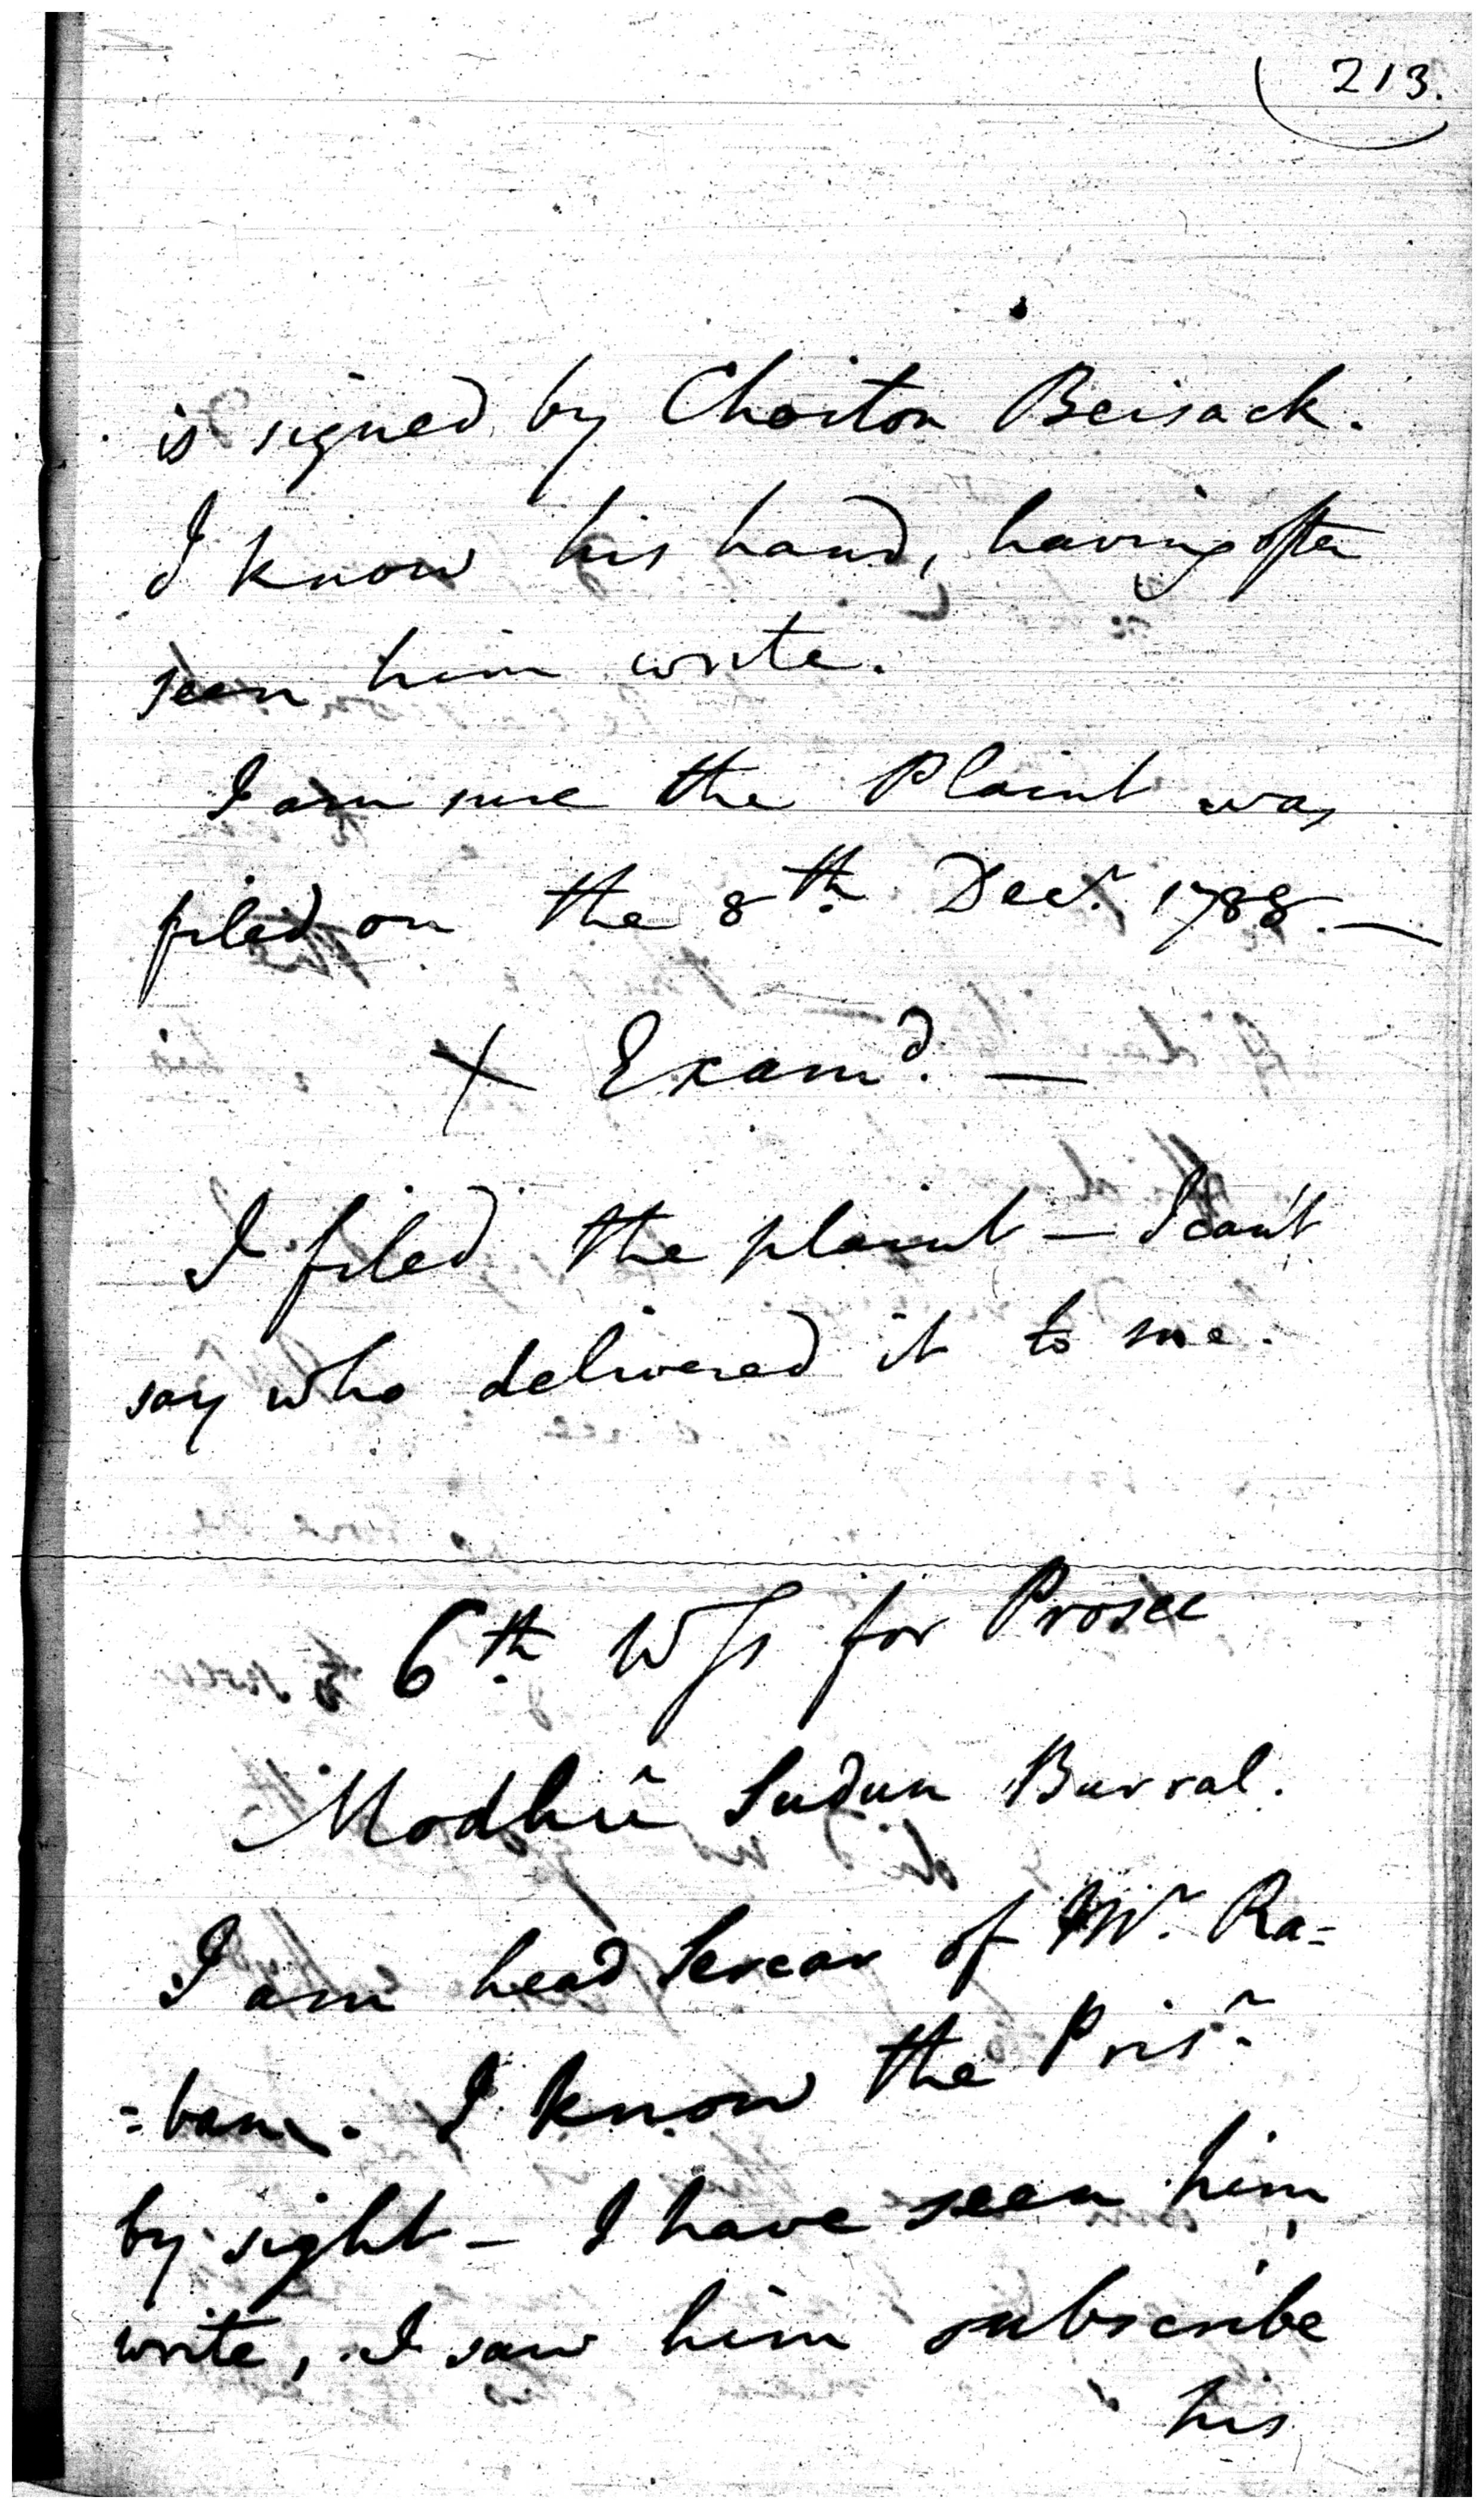 213.
is signed by Choiton Beisack.
I know his hand, having often
seen him write.
I am sure the Plaint was
filed on the 8th Decr. 1788.—
X Examd. —
I filed the plaint — I can't
say who delivered it to me.
6th Wss for Prosec
Modhû Sudun Burral.
I am head Sercar of Mr. Ra=
=ban. I know the Prisr
by sight — I have seen him
write, I saw him subscribe
his